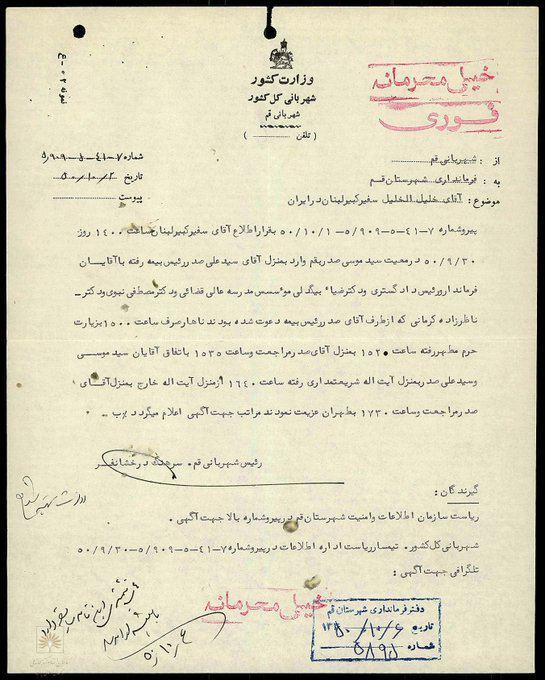 وزارت کشور
شهربانی کل کشور
شهربانی قم
( تلفن )
خیلی محرمانه
فوری
شماره ۷-۴۱-۵-۵/۹۰۹
تاریخ ۵۰/۱۰/۲
پیوست
از : شهربانی قم
به : فرمانداری شهرستان قم
موضوع : آقای خلیل الخلیل سفیرکبیر لبنان در ایران
پیرو شماره ۷-۴۱-۵-۵/۹۰۹-۵۰/۱۰/۱ بقرار اطلاع آقای سفیرکبیر لبنان ساعت ۱۴۰۰ روز
۵۰/۹/۳۰ در معیت سید موسی صدر بقم وارد بمنزل آقای سید علی صدر رئیس بیمه رفته با آقایان
فرماندار و رئیس دادگستری و دکتر ضیاء بیگدلی مؤسس مدرسه عالی قضائی و دکتر مصطفی نبوی و دکتر
ناظرزاده کرمانی که از طرف آقای صدر رئیس بیمه دعوت شده بودند ناهار صرف ساعت ۱۵۰۰ بزیارت
حرم مطهر رفته ساعت ۱۵۲۰ بمنزل آقای صدر مراجعت و ساعت ۱۵۳۵ باتفاق آقایان سید موسی
و سید علی صدر بمنزل آیت اله شریعتمداری رفته ساعت ۱۶۴۰ از منزل آیت اله خارج بمنزل آقای
صدر مراجعت و ساعت ۱۷۳۰ بطهران عزیمت نمودند مراتب جهت آگهی اعلام میگردد
رئیس شهربانی قم . سرهنگ درخشانفر
گیرندگان :
ریاست سازمان اطلاعات و امنیت شهرستان قم در پیرو شماره بالا جهت آگهی .
شهربانی کل کشور . تیمسار ریاست اداره اطلاعات در پیرو شماره ۷-۴۱-۵-۵/۹۰۹-۵۰/۹/۳۰
تلگرافی جهت آگهی :
خیلی محرمانه
دفتر فرمانداری شهرستان قم
تاریخ ۱۳۵۰/۱۰/۶
شماره ۵۸۹۸